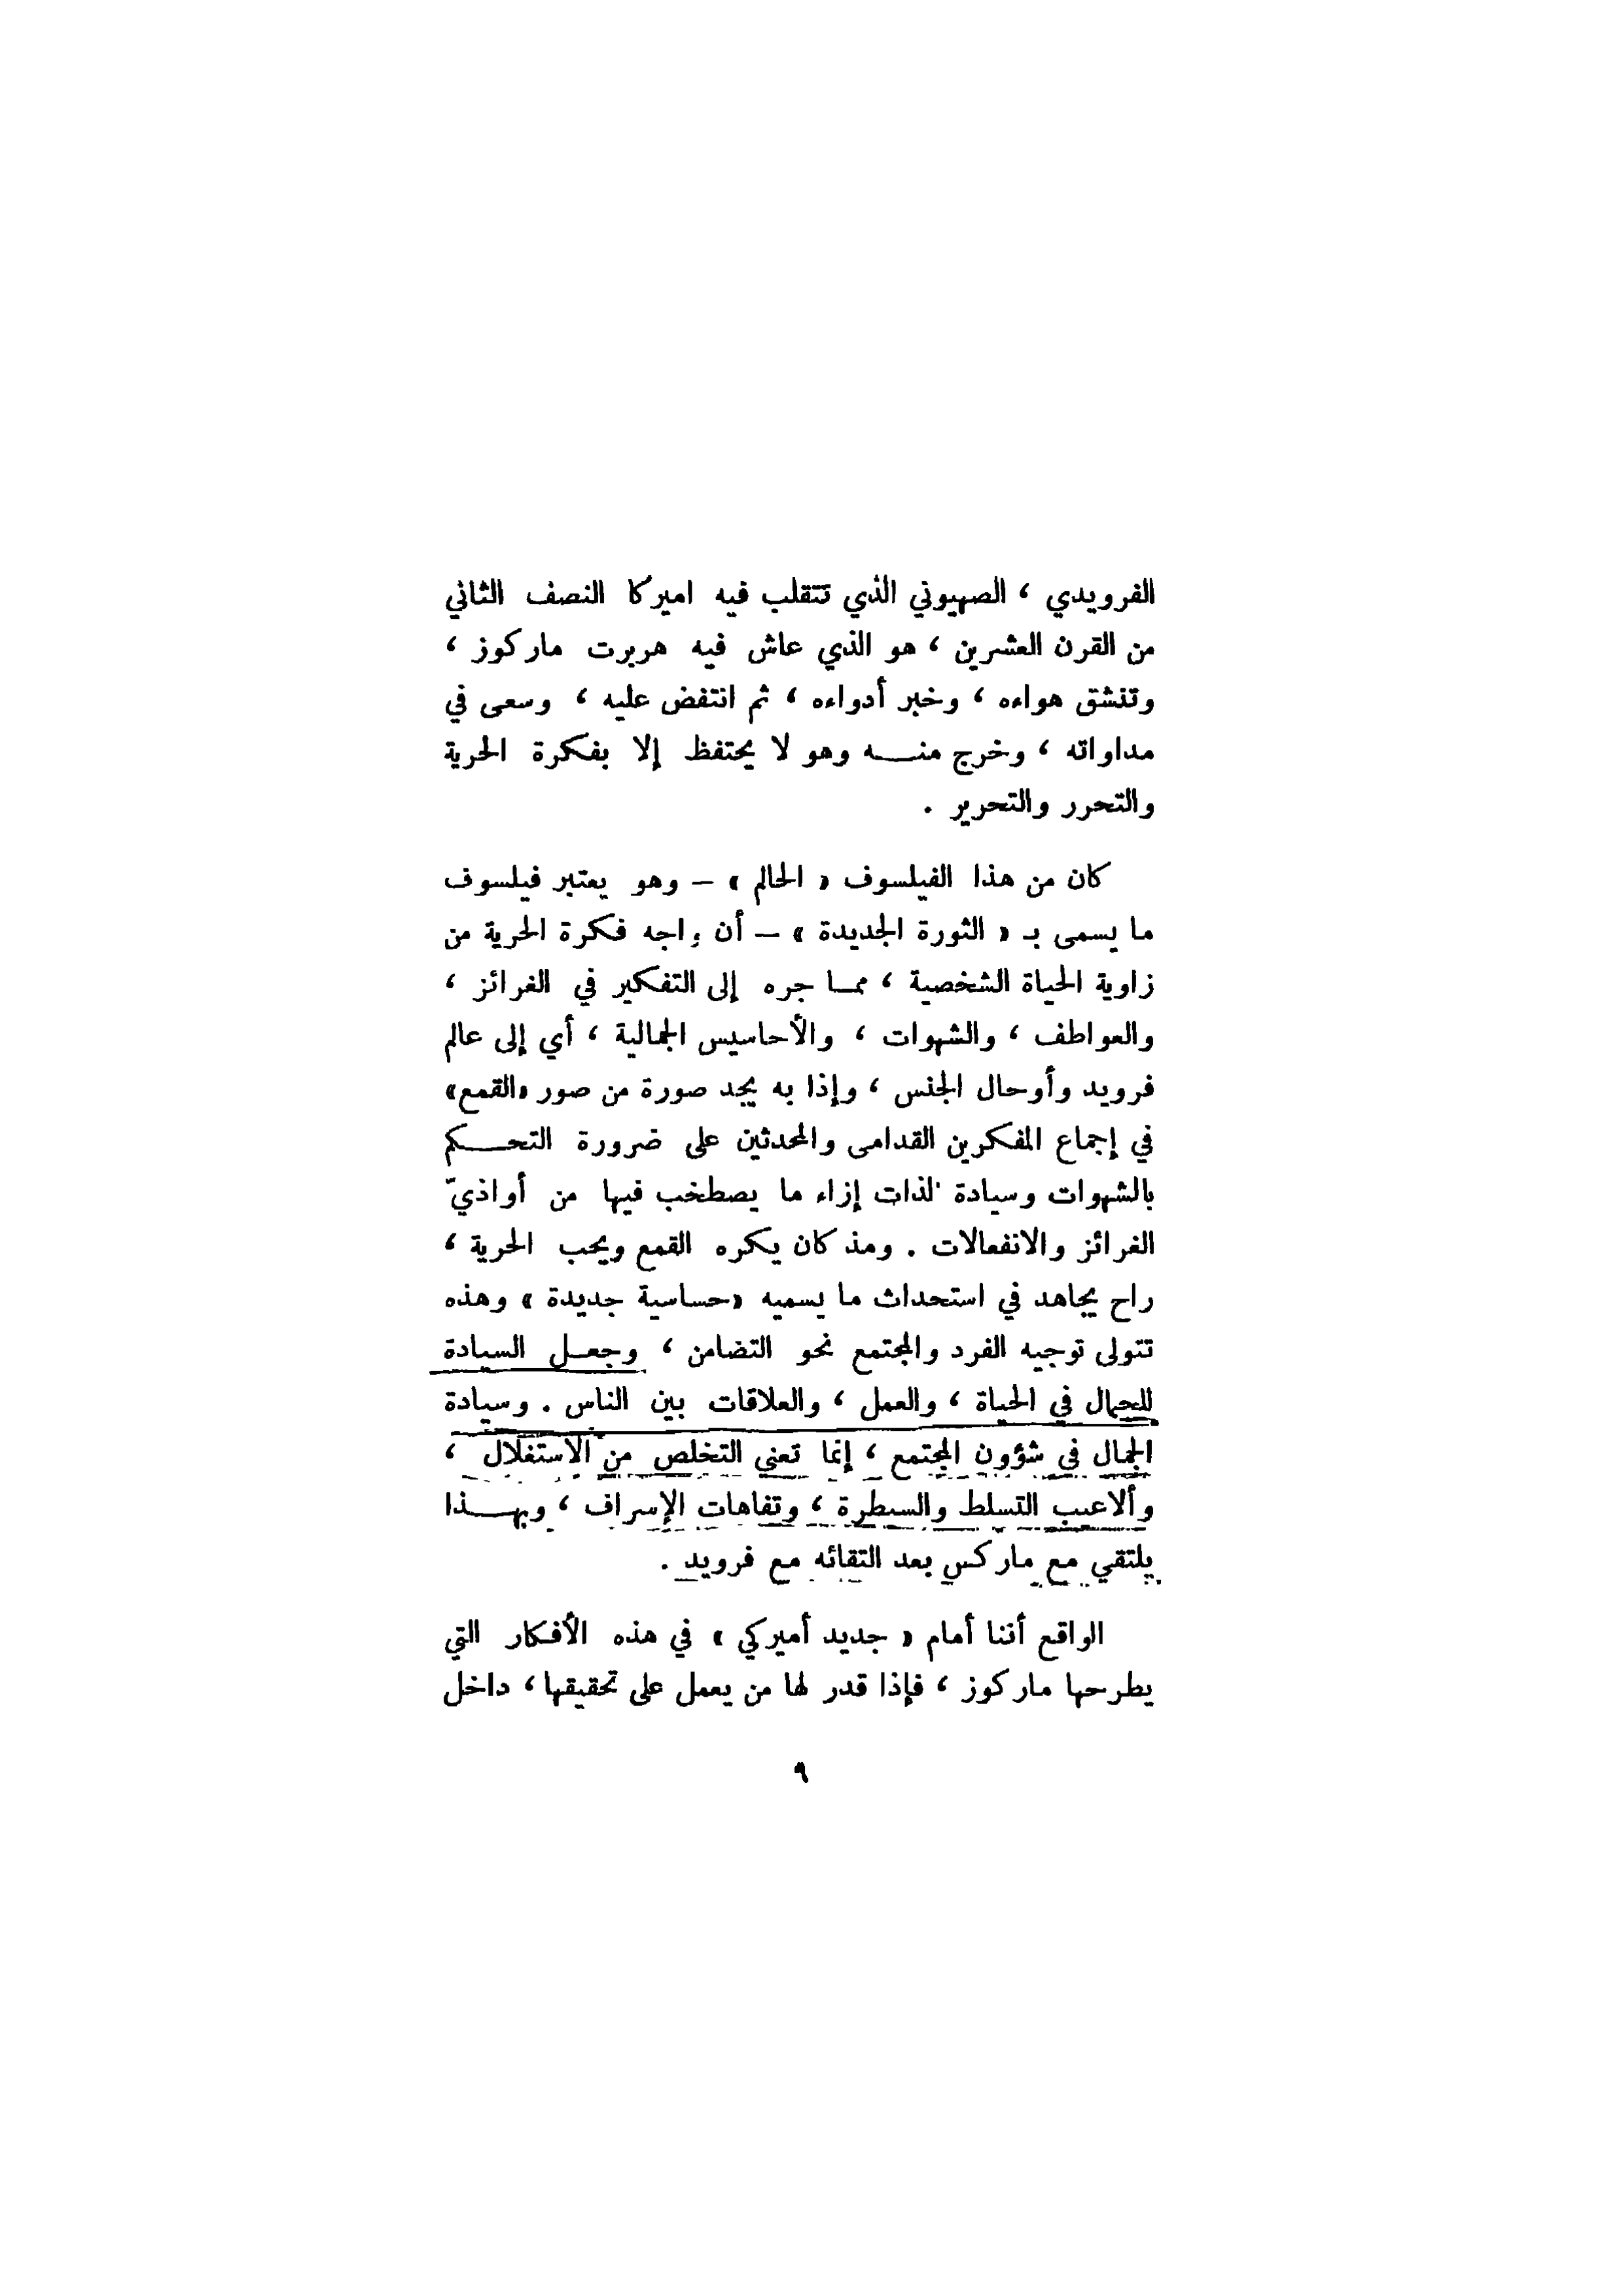 الفرويدي ، الصهيوني الذي تتقلب فيه اميركا النصف الثاني
من القرن العشرين ، هو الذي عاش فيه هربرت ماركوز ،
وتنشق هواءه ، وخبر أدواءه ، ثم انتفض عليه ، وسعى في
مداواته ، وخرج منـــه وهو لا يحتفظ إلا بفكرة الحرية
والتحرر والتحرير .
كان من هذا الفيلسوف « الحالم » – وهو يعتبر فيلسوف
ما يسمى بـ « الثورة الجديدة » – أن واجه فكرة الحرية من
زاوية الحياة الشخصية ، ممـا جره إلى التفكير في الغرائز ،
والعواطف ، والشهوات ، والأحاسيس الجمالية ، أي إلى عالم
فرويد وأوحال الجنس ، وإذا به يجد صورة من صور «القمع»
في إجماع المفكرين القدامى والمحدثين على ضرورة التحـــكم
بالشهوات وسيادة الذات إزاء ما يصطخب فيها من أواذيّ
الغرائز والانفعالات . ومذ كان يكره القمع ويحب الحرية ،
راح يجاهد في استحداث ما يسميه «حساسية جديدة » وهذه
تتولى توجيه الفرد والمجتمع نحو التضامن ، وجعـل السيادة
للجمال في الحياة ، والعمل ، والعلاقات بين الناس . وسيادة
الجمال في شؤون المجتمع ، إنما تعني التخلص من الاستغلال ،
وألاعيب التسلط والسيطرة ، وتفاهات الإسراف ، وبهــذا
يلتقي مع ماركس بعد التقائه مع فرويد .
الواقع أننا أمام « جديد أميركي » في هذه الأفكار التي
يطرحها ماركوز ، فإذا قدر لها من يعمل على تحقيقها ، داخل
٩